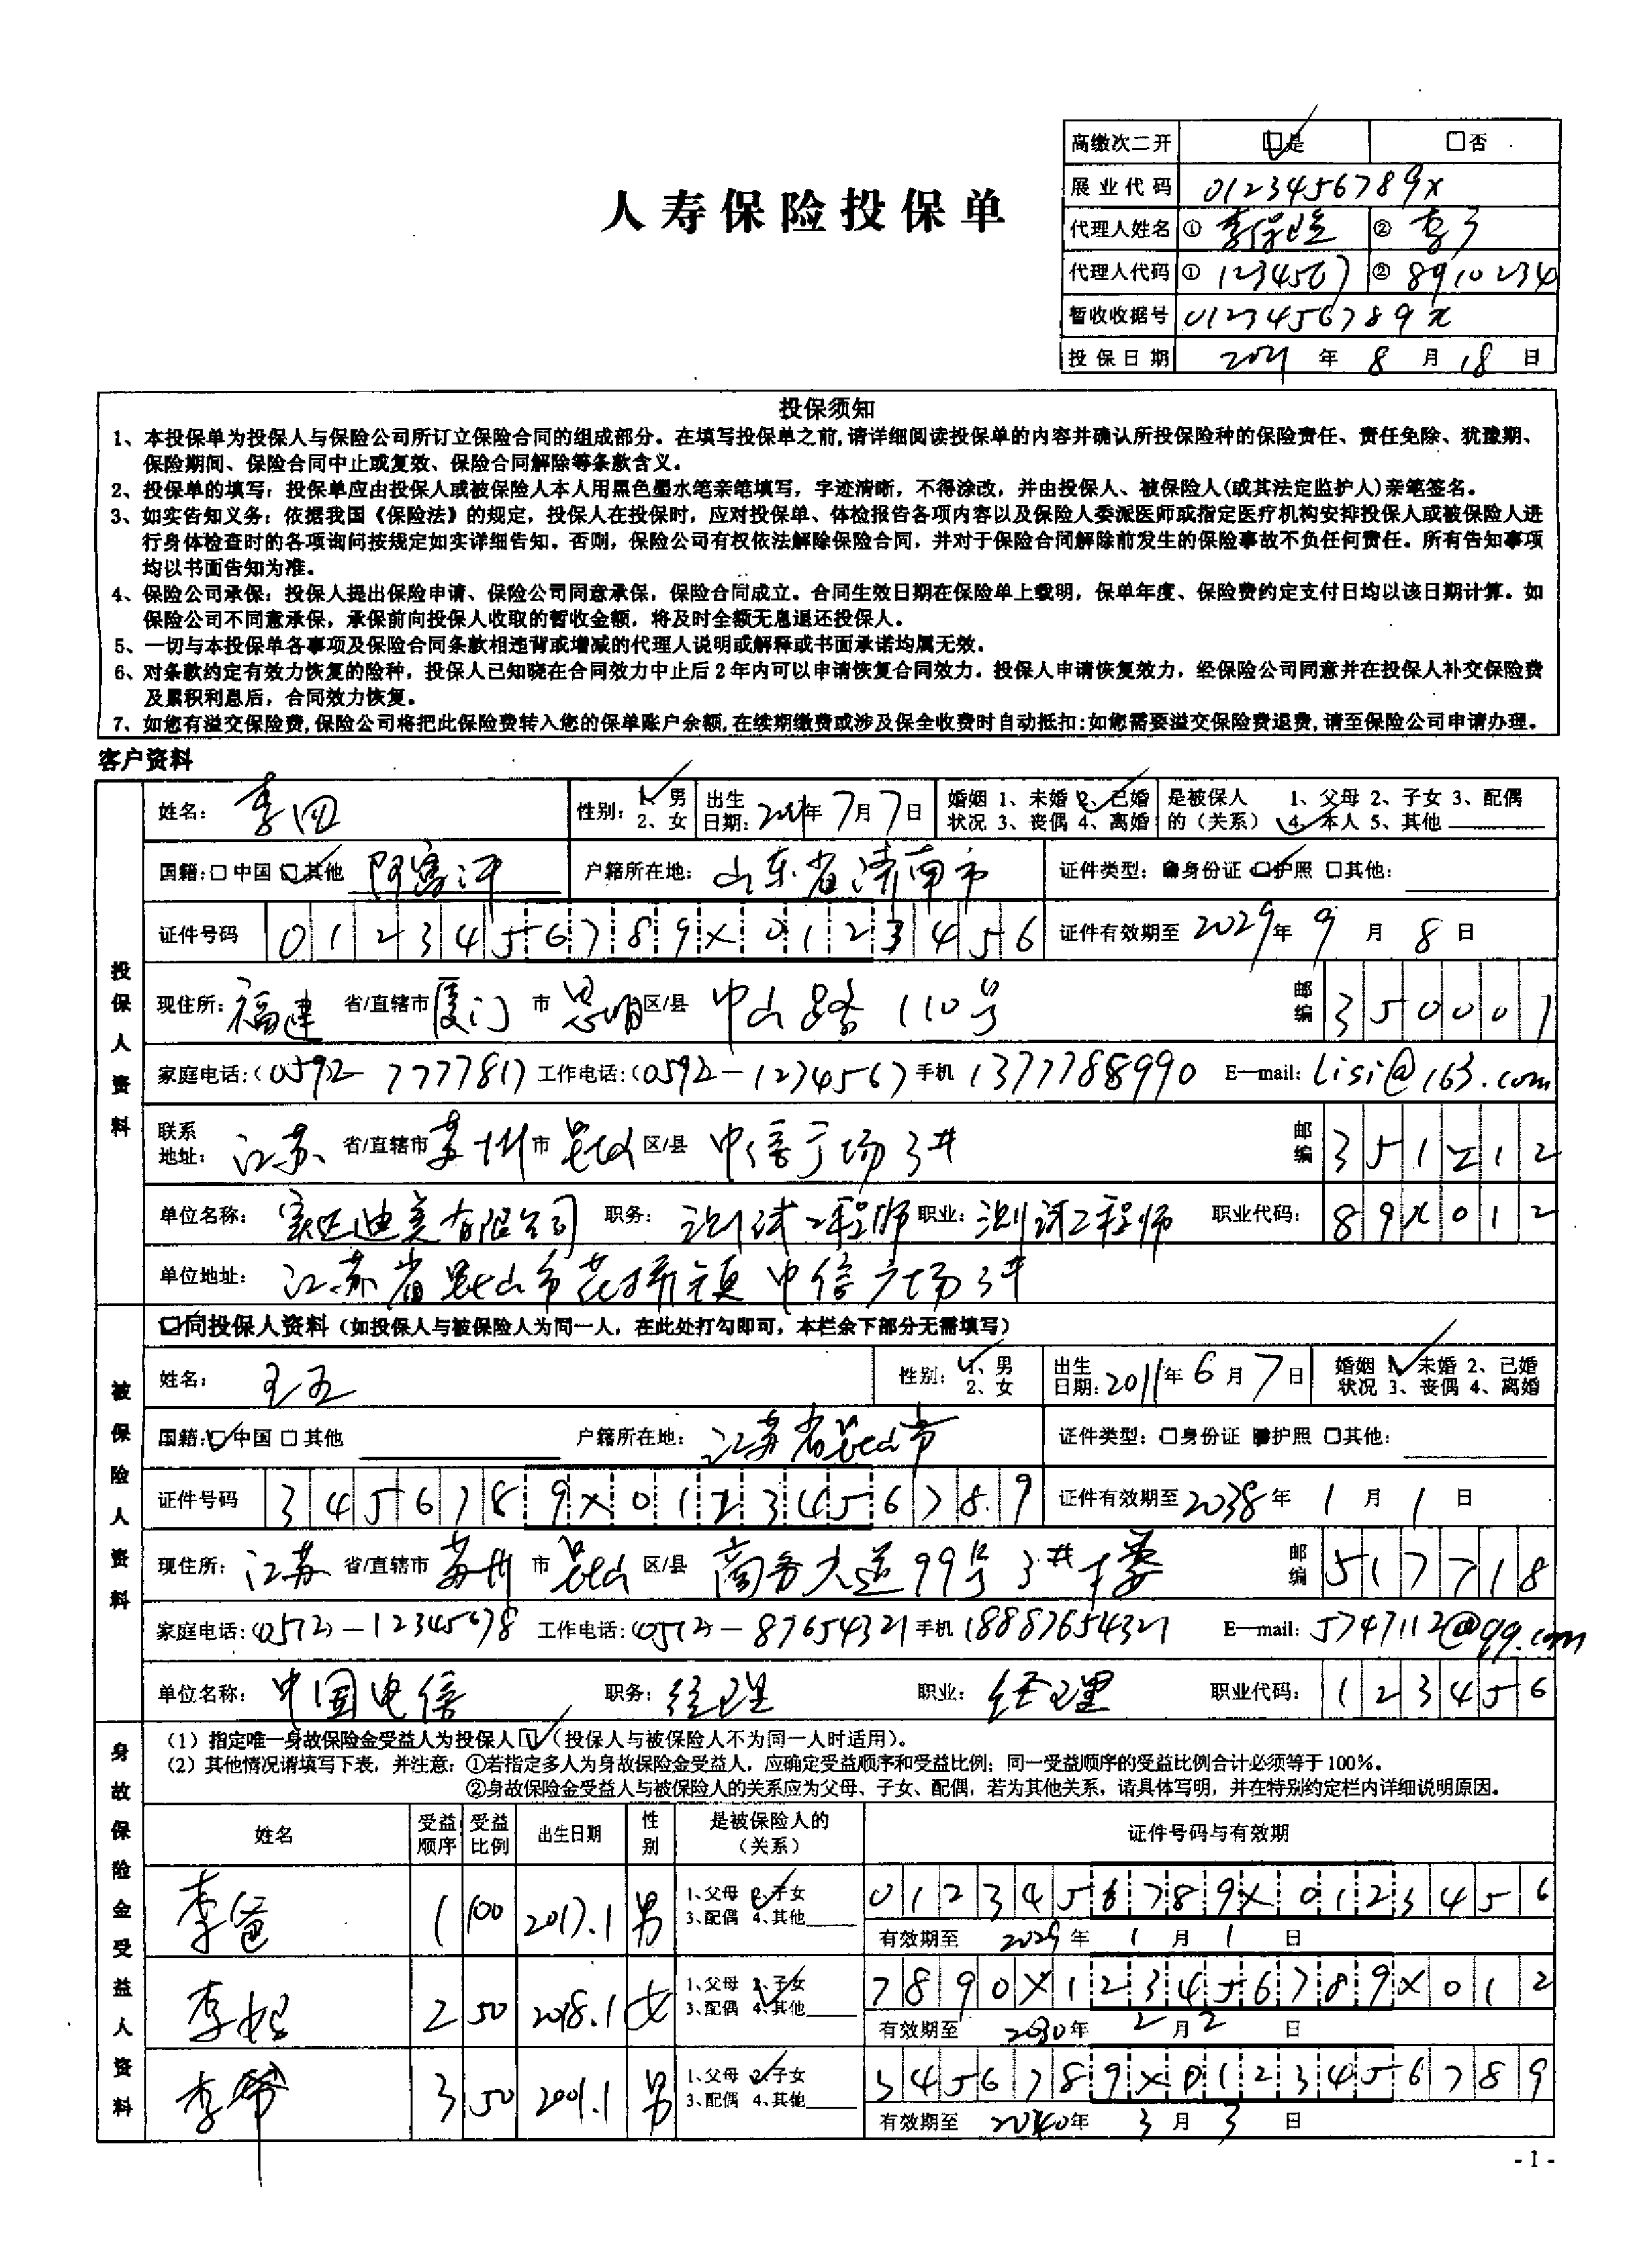 高缴次二开 □是 □否
人寿保险投保单
展业代码 0123456789x
代理人姓名 ① 李保险 ② 李了
代理人代码 ① 1234567 ② 8910234
暂收收据号 0123456789x
投保日期 2021 年 8 月 18 日
投保须知
1、本投保单为投保人与保险公司所订立保险合同的组成部分。在填写投保单之前,请详细阅读投保单的内容并确认所投保险种的保险责任、责任免除、犹豫期、
保险期间、保险合同中止或复效、保险合同解除等条款含义。
2、投保单的填写：投保单应由投保人或被保险人本人用黑色墨水笔亲笔填写，字迹清晰，不得涂改，并由投保人、被保险人(或其法定监护人)亲笔签名。
3、如实告知义务：依据我国《保险法》的规定，投保人在投保时，应对投保单、体检报告各项内容以及保险人委派医师或指定医疗机构安排投保人或被保险人进
行身体检查时的各项询问按规定如实详细告知。否则，保险公司有权依法解除保险合同，并对于保险合同解除前发生的保险事故不负任何责任。所有告知事项
均以书面告知为准。
4、保险公司承保：投保人提出保险申请、保险公司同意承保，保险合同成立。合同生效日期在保险单上载明，保单年度、保险费约定支付日均以该日期计算。如
保险公司不同意承保，承保前向投保人收取的暂收金额，将及时全额无息退还投保人。
5、一切与本投保单各事项及保险合同条款相违背或增减的代理人说明或解释或书面承诺均属无效。
6、对条款约定有效力恢复的险种，投保人已知晓在合同效力中止后2年内可以申请恢复合同效力。投保人申请恢复效力，经保险公司同意并在投保人补交保险费
及累积利息后，合同效力恢复。
7、如您有溢交保险费,保险公司将把此保险费转入您的保单账户余额,在续期缴费或涉及保全收费时自动抵扣;如您需要溢交保险费退费,请至保险公司申请办理。
客户资料
投保人资料
姓名：李四 性别：1、男 2、女 出生日期：年 7 月 7 日 婚姻状况 1、未婚 2、已婚 3、丧偶 4、离婚 是被保人的（关系） 1、父母 2、子女 3、配偶 4、本人 5、其他
国籍:□中国 □其他 阿富汗 户籍所在地：山东省济南市 证件类型：身份证 □护照 □其他：
证件号码 0123456789x0123456 证件有效期至 2029 年 9 月 8 日
现住所：福建 省/直辖市 厦门 市 思明 区/县 中山路110号 邮编 350001
家庭电话:(0592-7777817 工作电话:(0592-1234567 手机 13777788990 E-mail: lisi@163.com
联系地址：江苏 省/直辖市 苏州 市 昆山 区/县 中信广场3# 邮编 351212
单位名称：宸达迪美有限公司 职务：测试工程师 职业：测试工程师 职业代码：89x012
单位地址：江苏省昆山市花桥镇中信广场3#
被保险人资料
□同投保人资料（如投保人与被保险人为同一人，在此处打勾即可，本栏余下部分无需填写）
姓名：王五 性别：1、男 2、女 出生日期：2011 年 6 月 7 日 婚姻状况 1、未婚 2、已婚 3、丧偶 4、离婚
国籍:□中国 □其他 户籍所在地：江苏省昆山市 证件类型：□身份证 护照 □其他：
证件号码 3456789x0123456789 证件有效期至 2038 年 1 月 1 日
现住所：江苏 省/直辖市 苏州 市 昆山 区/县 商务大道99号3#楼 邮编 517718
家庭电话:(0512)-12345678 工作电话:(0512)-87654321 手机 18887654321 E-mail: 5747112@qq.com
单位名称：中国电信 职务：经理 职业：经理 职业代码：123456
身故保险金受益人资料
（1）指定唯一身故保险金受益人为投保人□（投保人与被保险人不为同一人时适用）。
（2）其他情况请填写下表，并注意：①若指定多人为身故保险金受益人，应确定受益顺序和受益比例；同一受益顺序的受益比例合计必须等于100%。
②身故保险金受益人与被保险人的关系应为父母、子女、配偶，若为其他关系，请具体写明，并在特别约定栏内详细说明原因。
姓名 受益顺序 受益比例 出生日期 性别 是被保险人的（关系） 证件号码与有效期
李爸 1 100 2017.1 男 1、父母 2、子女 3、配偶 4、其他 0123456789x0123456
有效期至 2029 年 1 月 1 日
李妈 2 50 2018.1 女 1、父母 2、子女 3、配偶 4、其他 7890x123456789x012
有效期至 2030 年 2 月 2 日
李帮 3 50 2001.1 男 1、父母 2、子女 3、配偶 4、其他 3456789x0123456789
有效期至 2040 年 3 月 3 日
- 1 -